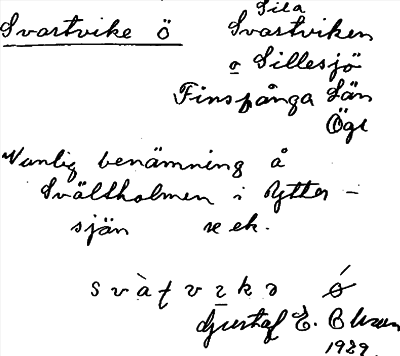 Svartvike ö
Sila
Svartviken
o Sillesjö
Finspånga Län
Ögl
Vanlig benämning å
Svältholmen i Ytter-
sjän se ek.
Gustaf E. Olsson
1929